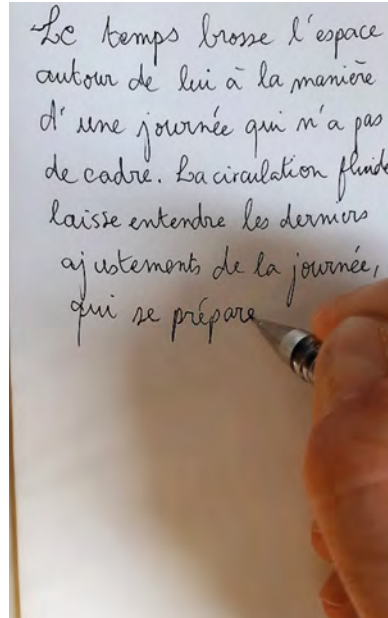 Le temps brosse l'espace
autour de lui à la manière
d'une journée qui n'a pas
de cadre. La circulation fluide
laisse entendre les derniers
ajustements de la journée,
qui se prépare